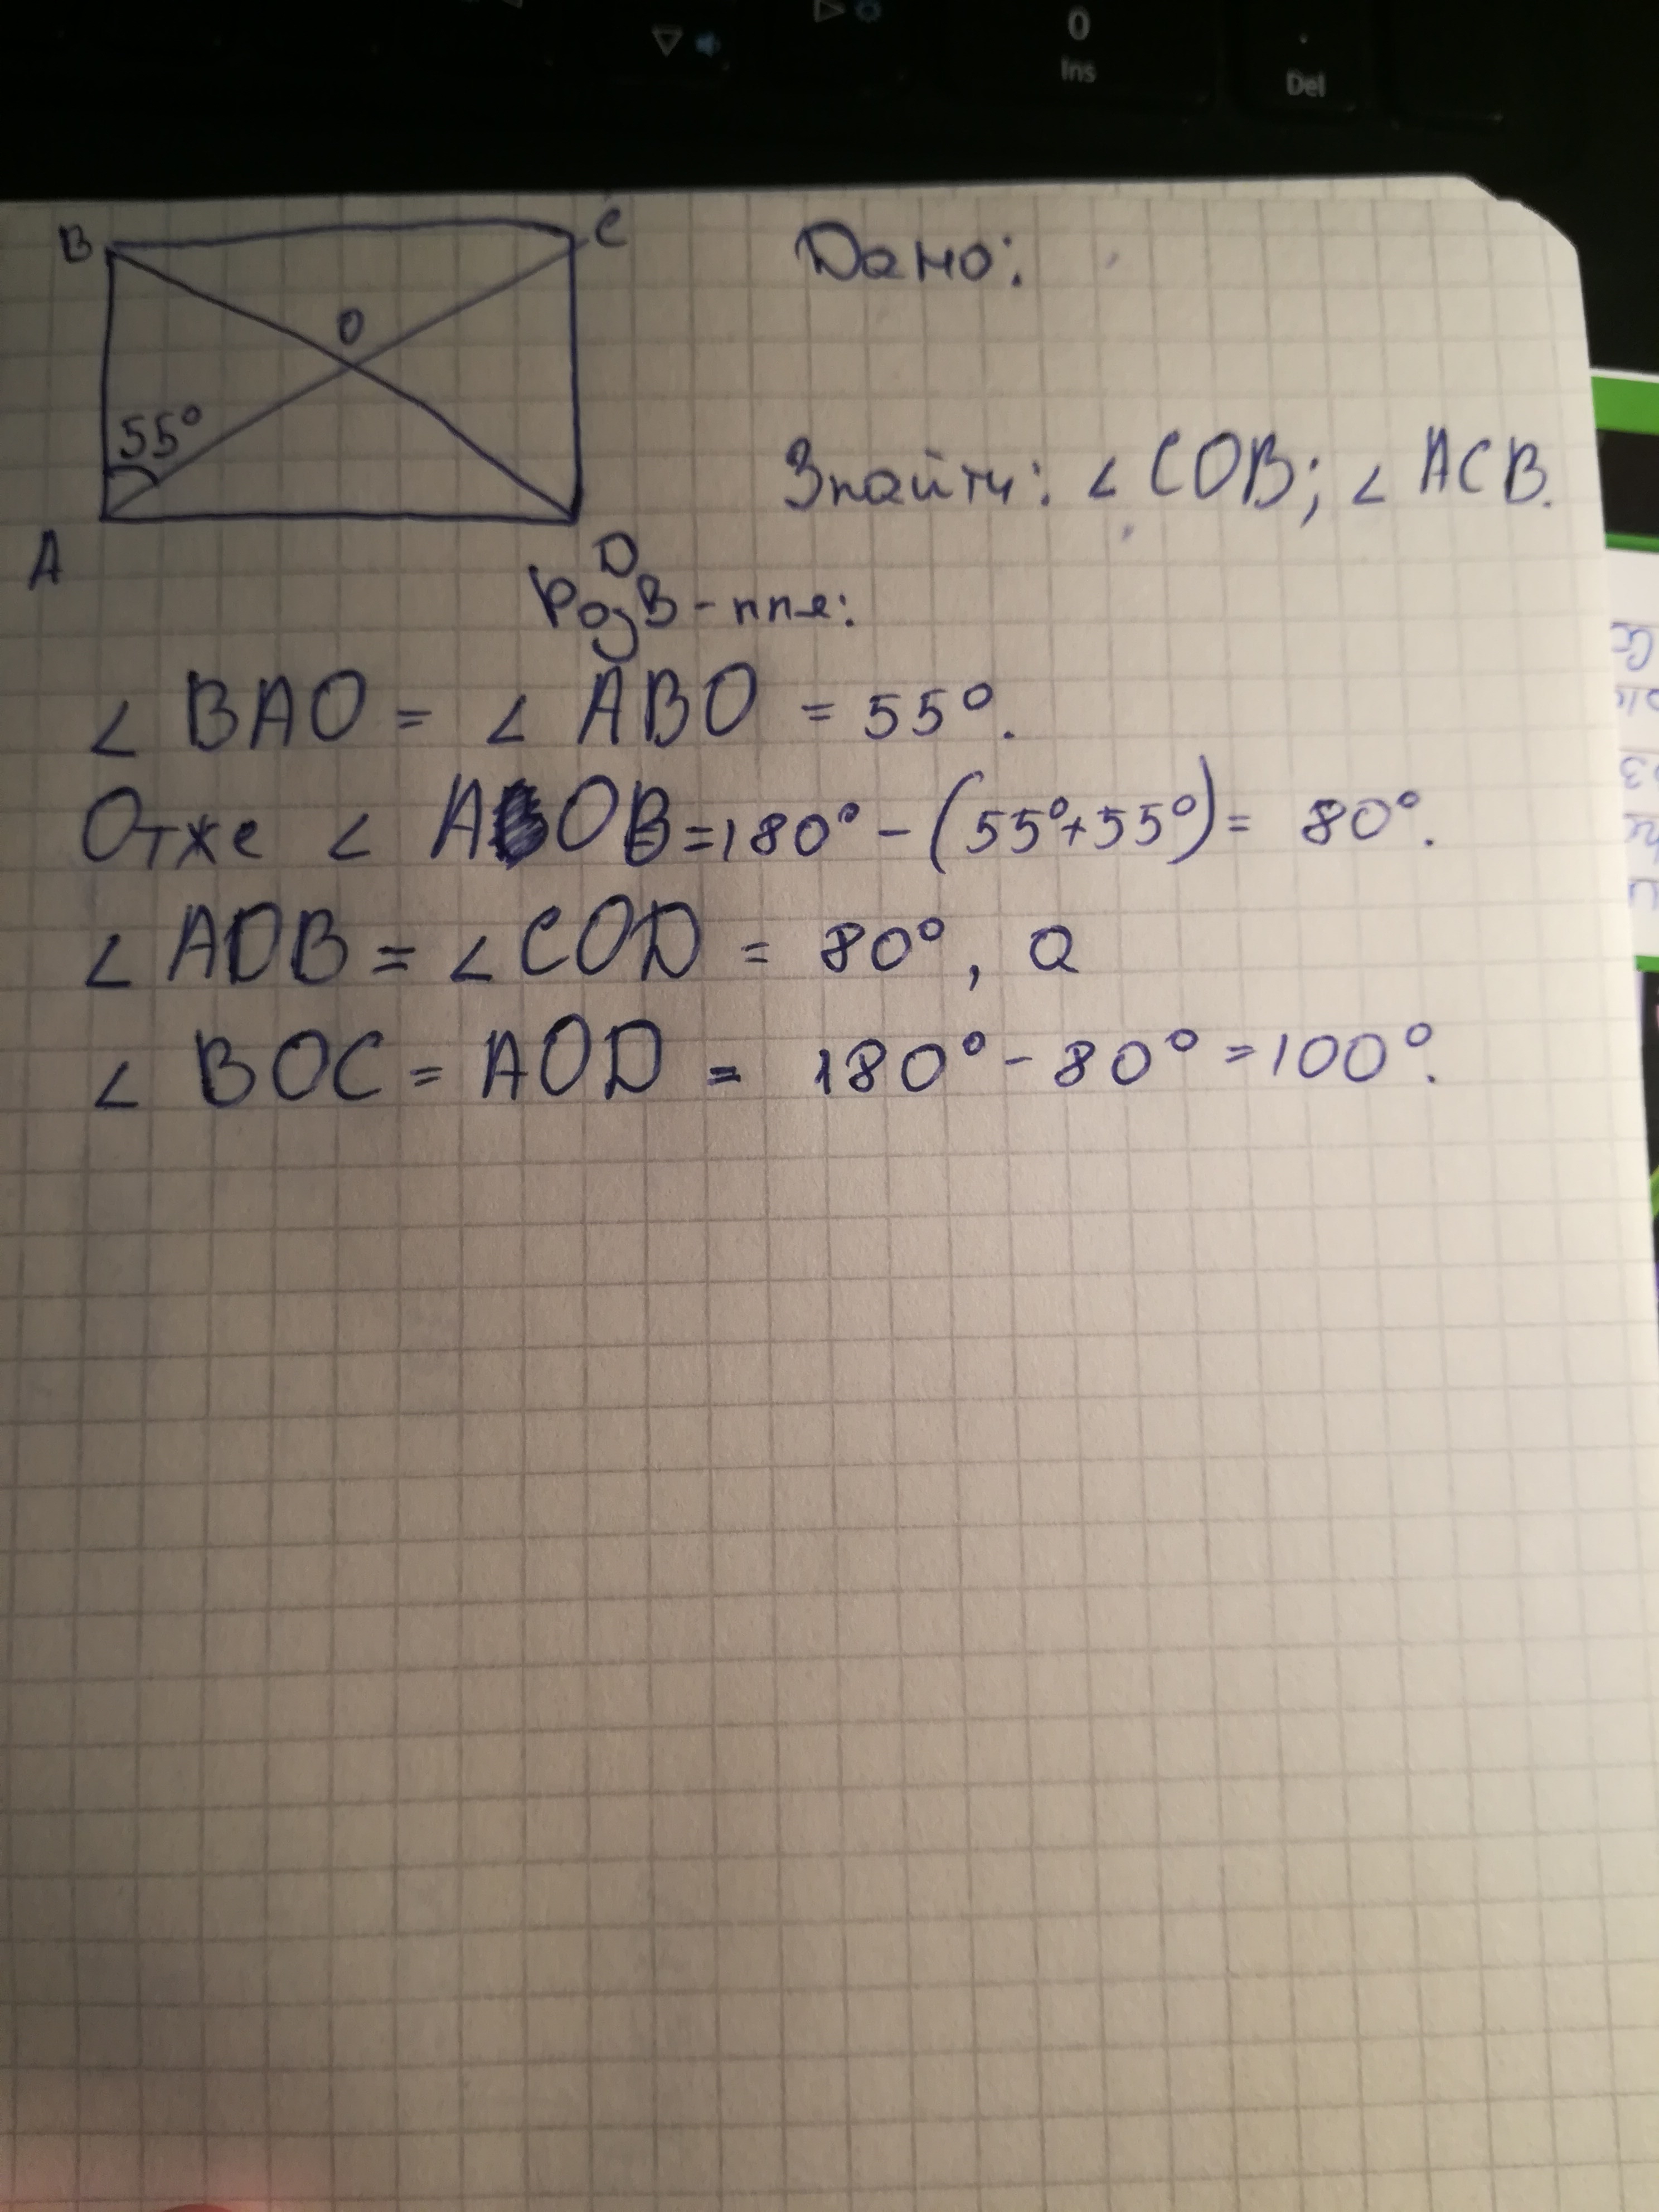 0
Ins
.
Del
B
C
O
55°
A
D
Дано:
Знайти: ∠ COB; ∠ ACB.
Розв-ння:
∠ BAO = ∠ ABO = 55°.
Отже ∠ AOB = 180° - (55°+55°) = 80°.
∠ AOB = ∠ COD = 80°, а
∠ BOC = AOD = 180° - 80° = 100°.